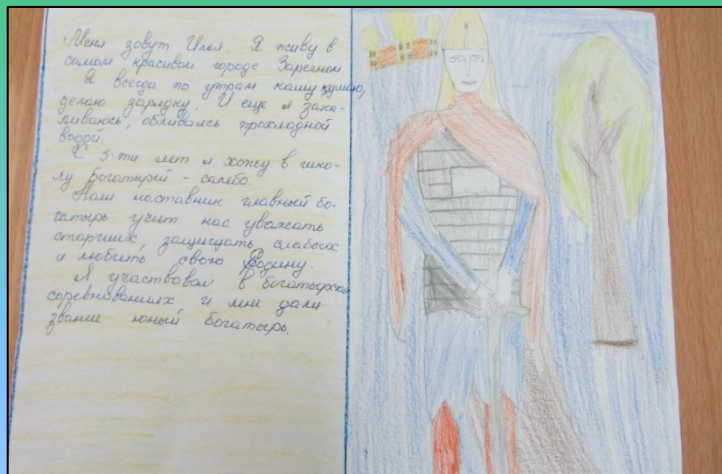 Меня зовут Илья. Я живу в
самом красивом городе Заречном
Я всегда по утрам кашу кушаю,
делаю зарядку. И еще я зака-
ливаюсь, обливаясь прохладной
водой.
С 5-ти лет я хожу в шко-
лу богатырей - самбо.
Наш наставник главный бо-
гатырь учит нас уважать
старших, защищать слабых
и любить свою Родину.
Я участвовал в богатырских
соревнованиях и мне дали
звание юный богатырь.